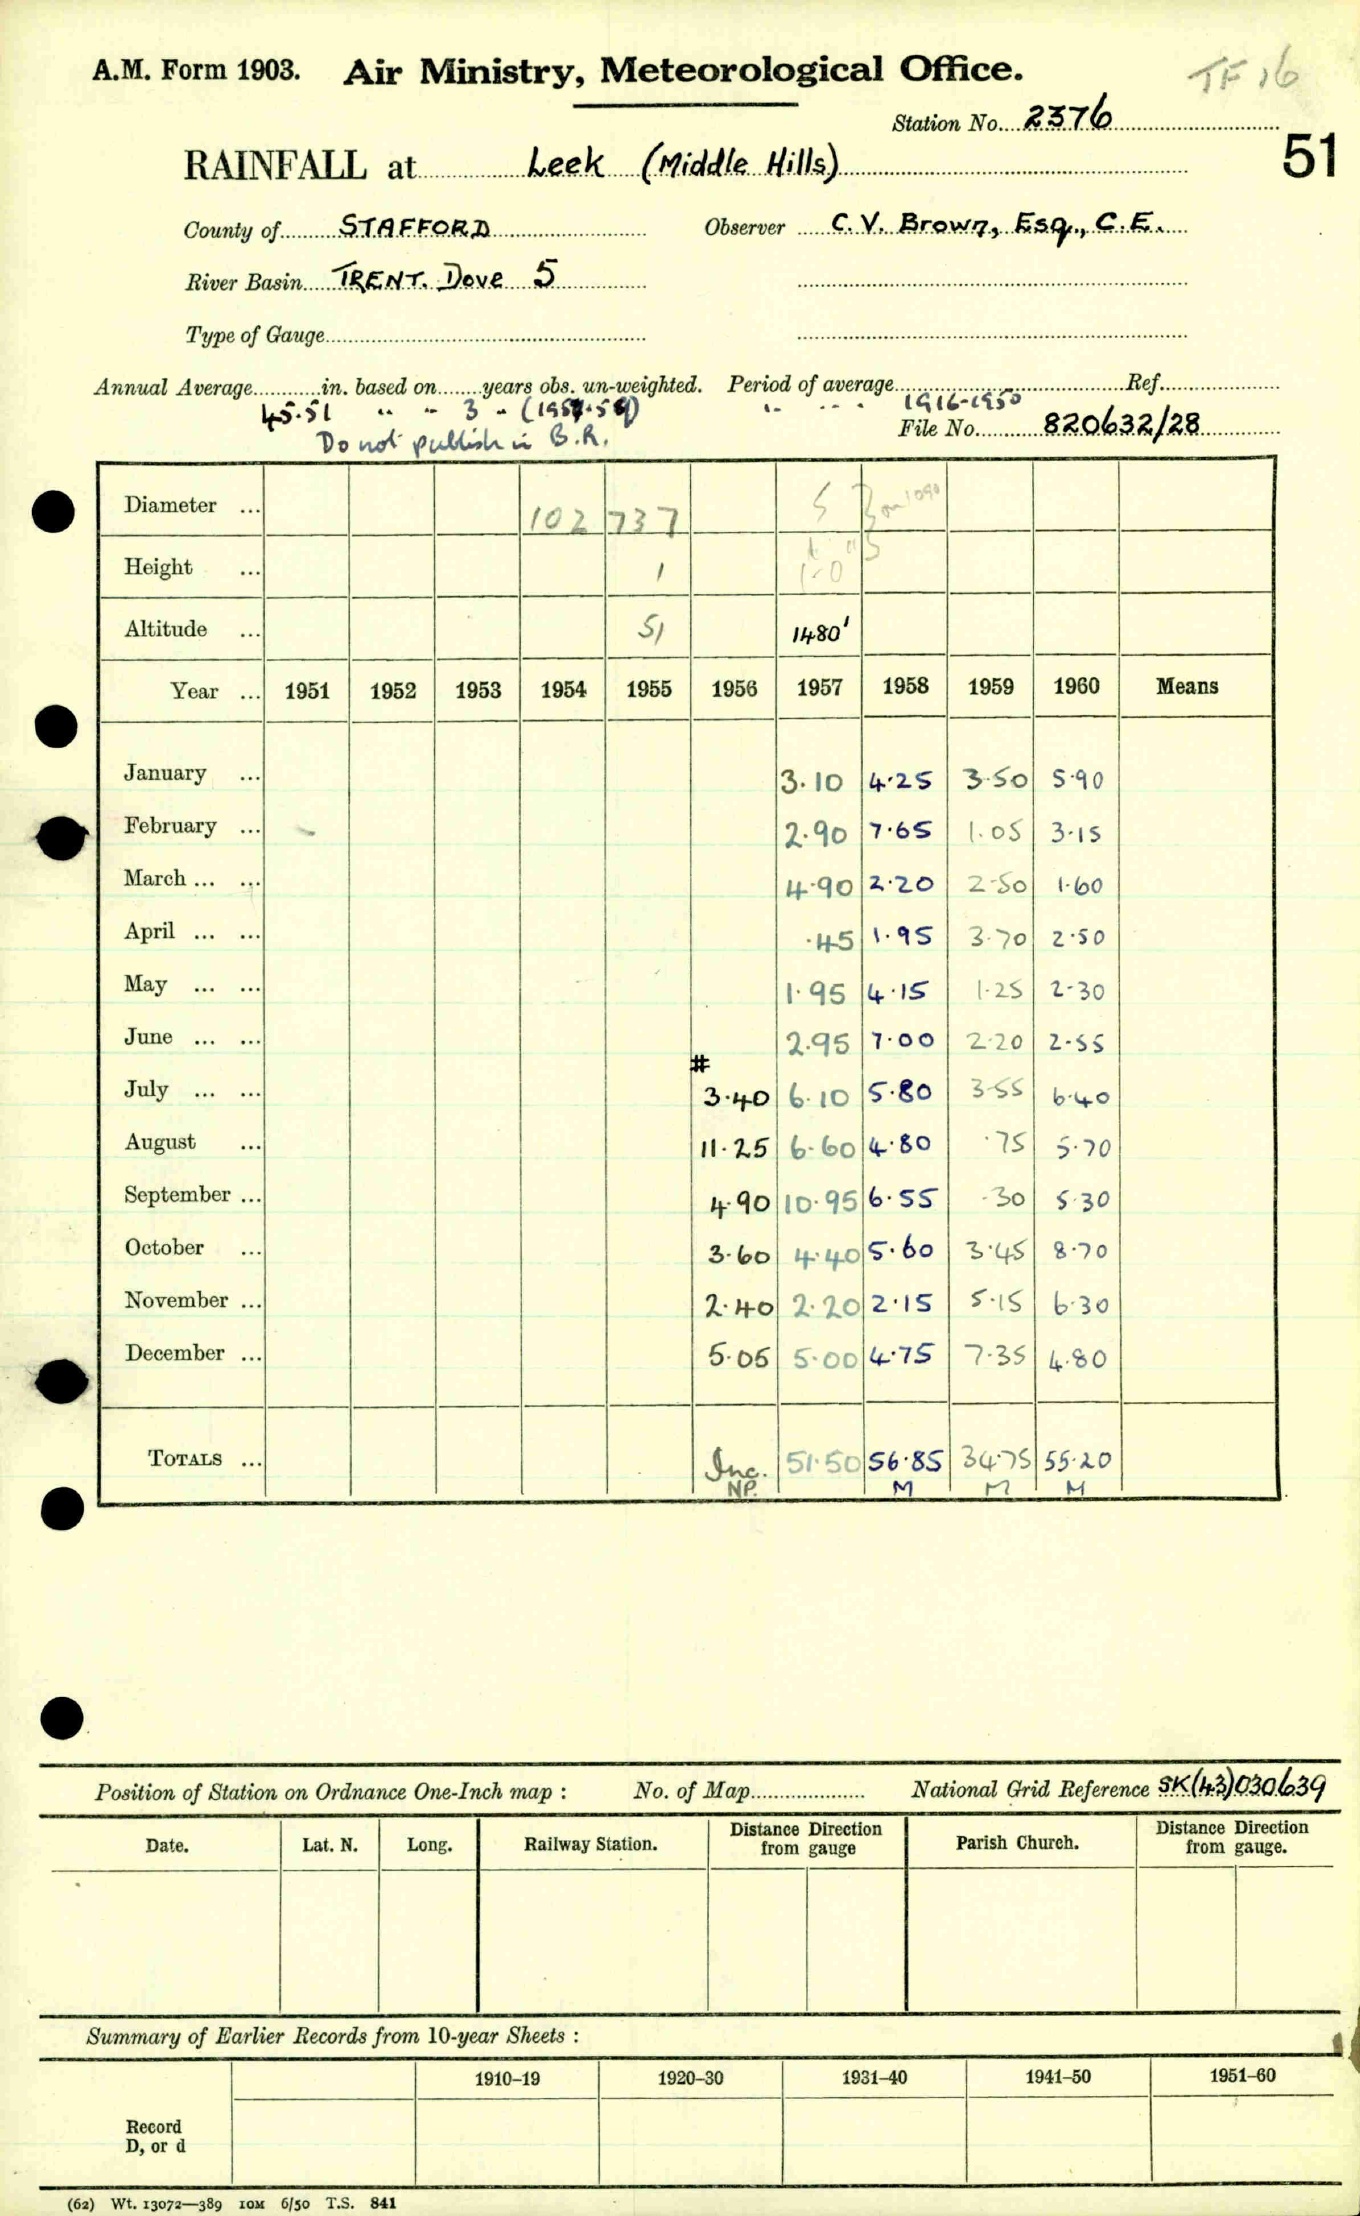 TF 16
A.M. Form 1903. Air Ministry, Meteorological Office.
Station No. 2376
51
RAINFALL at Leek (Middle Hills)
County of STAFFORD Observer C. V. Brown, Esq., C.E.
River Basin TRENT. Dove 5
Type of Gauge
Annual Average in. based on years obs. un-weighted. Period of average Ref.
45.51 " " 3 " " " " " 1916-1950
File No. 820632/28
Do not publish in B.R.
Diameter ... 102 737 5 } on 1090
Height ... 1 1-0
Altitude ... 51 1480'
Year ... 1951 1952 1953 1954 1955 1956 1957 1958 1959 1960 Means
January ... 3.10 4.25 3.50 5.90
February ... 2.90 7.65 1.05 3.15
March ... ... 4.90 2.20 2.50 1.60
April ... ... .45 1.95 3.70 2.50
May ... ... 1.95 4.15 1.25 2.30
June ... ... 2.95 7.00 2.20 2.55
#
July ... ... 3.40 6.10 5.80 3.55 6.40
August ... 11.25 6.60 4.80 .75 5.70
September ... 4.90 10.95 6.55 .30 5.30
October ... 3.60 4.40 5.60 3.45 8.70
November ... 2.40 2.20 2.15 5.15 6.30
December ... 5.05 5.00 4.75 7.35 4.80
TOTALS ... Inc. 51.50 56.85 34.75 55.20
NP. M M M
Position of Station on Ordnance One-Inch map : No. of Map National Grid Reference SK(43)030639
Date. Lat. N. Long. Railway Station. Distance from Direction gauge Parish Church. Distance from Direction gauge.
Summary of Earlier Records from 10-year Sheets :
1910–19 1920–30 1931–40 1941–50 1951–60
Record
D, or d
(62) Wt. 13072—389 10M 6/50 T.S. 841